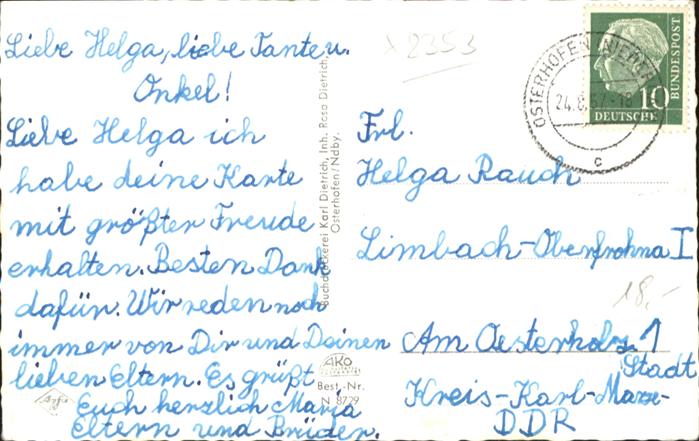 Liebe Helga, liebe Tante u.
Onkel!
Liebe Helga ich
habe deine Karte
mit größter Freude
erhalten. Besten Dank
dafür. Wir reden noch
immer von Dir und Deinen
lieben Eltern. Es grüßt
Euch herzlich Maria
Eltern und Brüder.
x 2353
Buchdruckerei Karl Dietrich, Inh. Rosa Dietrich,
Osterhofen/Ndby.
AKO
Best.-Nr.
N 8729
OSTERHOFEN
24.8.57-18
c
10
DEUTSCHE
BUNDESPOST
Frl.
Helga Rauch
Limbach-Oberfrohna I
18,-
Am Oesterholz 1
Kreis-Karl-Marx-
Stadt
DDR